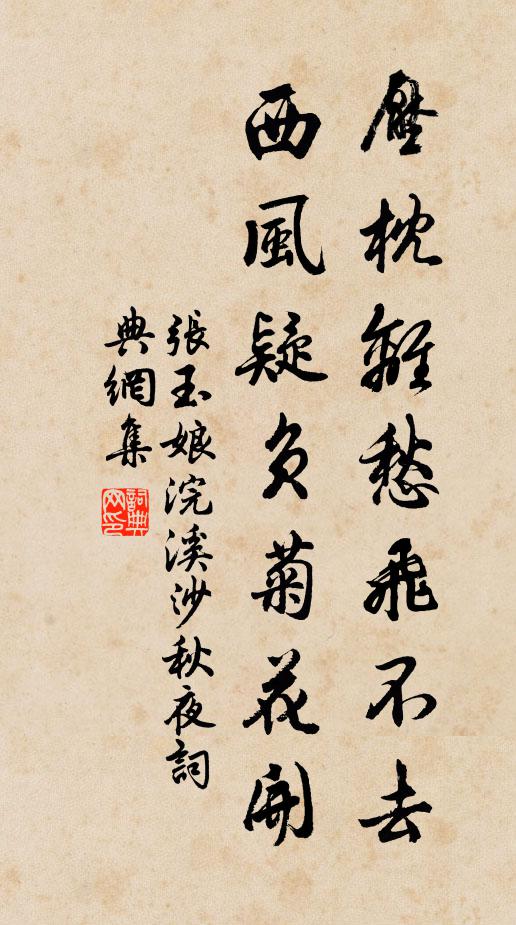 壓枕離愁飛不去
西風疑負菊花開
張玉娘浣溪沙秋夜詞
典網集
詞典網印